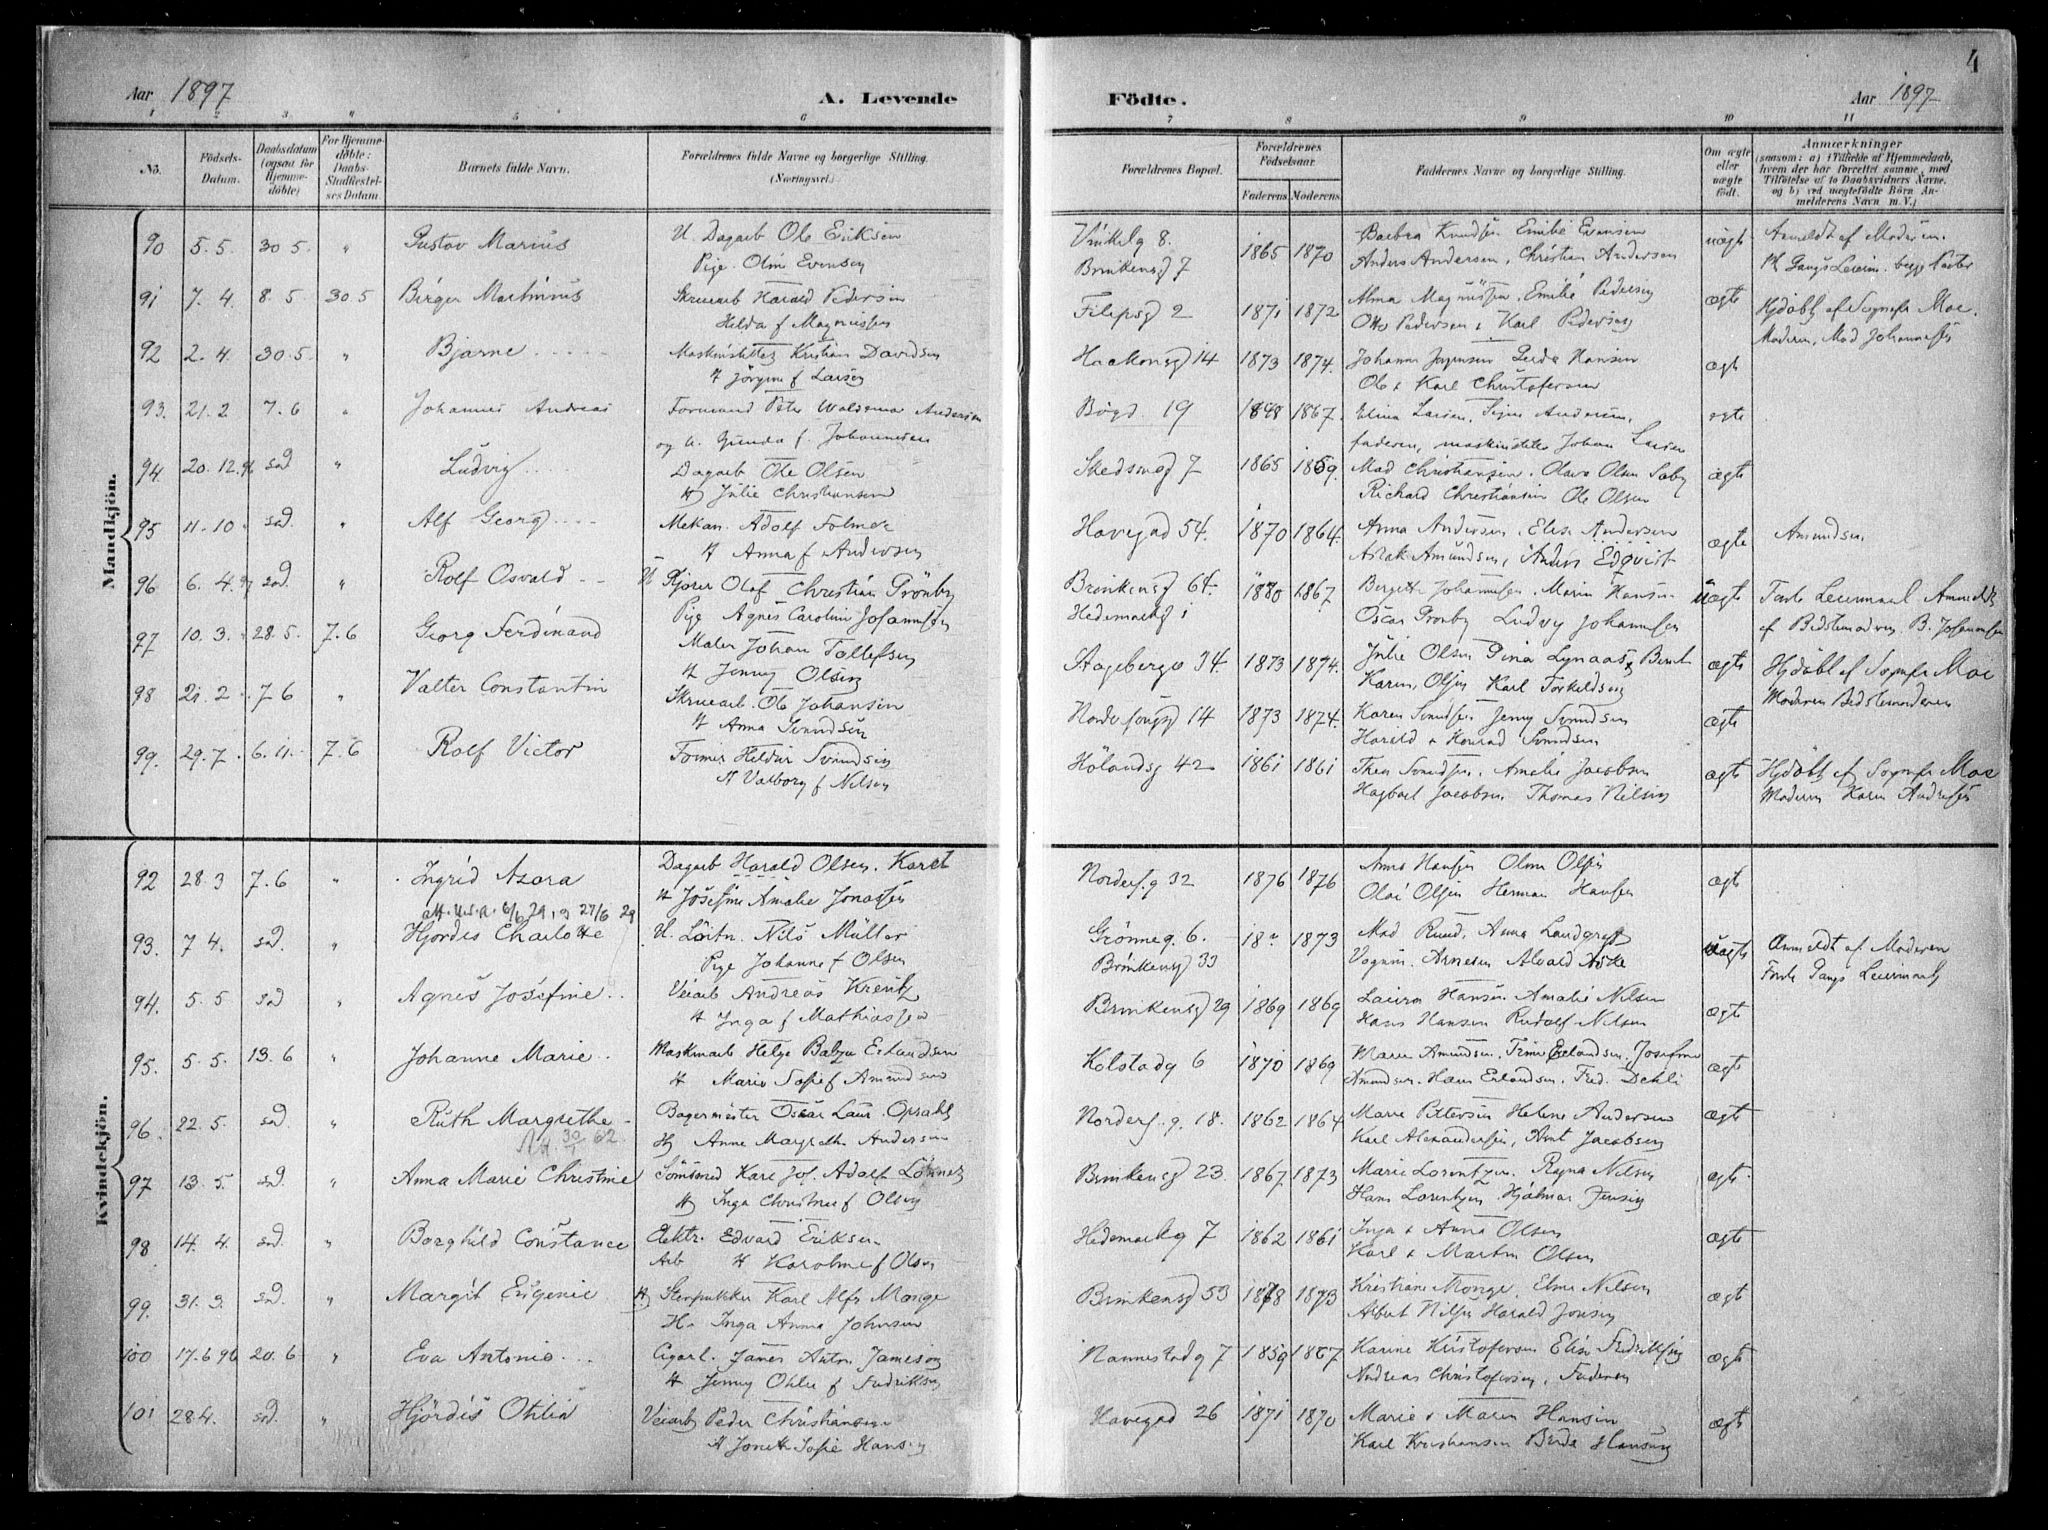 Aar 1897 A. Levende Födte. Aar 1897 4
1 2 3 " 5 6 7 8 9 10 11
No. Födsels-Datum. Daabsdatum (ogsaa for Hjemmedöbte) For Hjemmedöbte: Daabs-Stadfæstelses Datum. Barnets fulde Navn. Forældrenes fulde Navne og borgerlige Stilling. (Næringsvei.) Forældrenes Bopæl. Forældrenes Födselsaar. Faderens Moderens Faddernes Navne og borgerlige Stilling. Om ægte eller uægte födt. Anmærkninger (saasom: a) i Tilfælde af Hjemmedaab, hvem der har forrettet samme, med Tilföielse af to Daabsvidners Navne, og b) ved uægtefödte Börn Anmelderens Navn m. V.)
Mandkjön.
90 5.5. 30 5. " Gustav Marius U. Dagarb Ole Eriksen Vinkelg 8. 1865 1870 Barbra Knudsen Emilie Evensen uægte Anmeldt af Moderen.
Pige. Olin Evensen Brinkensg 7 Anders Andersen, Christian Andersen
91 7. 4. 8. 5 30 5 Birger Martinius Skruearb Harald Pedersen Filipsg 2 1871 1872 Alma Magnussen, Emilie Pedersen ægte Hjdöbt af Sognepr Moe.
Hilda f Magnussen Otto Pedersen & Karl Pedersen Moderen, Mad Johannessen
92 2. 4. 30. 5. " Bjarne Maskinsletter Kristian Davidsen Haakonsg 14 1873 1874. Johanne Jørgensen Gerda Hansen ægt
H Jörgine f Larsen Ole & Karl Christofersen
93. 21. 2 7. 6 " Johannes Andreas Formand Peter Waldemar Andersen Bögd 19 1867. Elina Larsen, Signe Andersen, ægte
og H. Gunda f. Johannesen faderen, maskinsletter Johan Larsen
94 20. 12. 96 sad " Ludvig Dagarb Ole Olsen Skedsmog 7 1865 1859. Mad Christiansen. Olava Olsen Saby ægte
H Julie Christiansen Richard Christiansen Ole Olsen
95 11. 10 sad. " Alf Georg Mekan. Adolf Folmer Havegad 54. 1870 1864. Anna Andersen, Elise Andersen ægte Amundsen
H Anna f Andersen Aslak Amundsen, Anders Edqvist
96 6. 4. 97 sad. " Rolf Osvald U Kjører Olaf Christian Grönby Brinkensg 64. 1867 Bergette Johannessen. Marie Hansen uægte
Pige Agnes Caroline Johannessen Hedemarksg 1 Oscar Grønby Ludvig Johannessen af Bedstemoderen B. Johannessen
97 10. 3. 28. 5. 7. 6 Georg Ferdinand Maler Johan Tollefsen Stagebergv 34. 1873 1874. Julie Olsen ægte Hjdöbt af Sognepr Moe
H Jenny Olsen Karen Olsen Karl Torkildsen Moderen Bedstemoderen
98 21. 2 7 6 " Valter Constantin Skruearb. Ole Johansen 14 1873 1874. Karen Svendsen Jenny Svendsen ægte
H Anna Svendsen Harald & Konrad Svendsen
99. 29. 7. 6. 11. 7. 6 Rolf Victor Former Heldur Svendsen Hölandsg 42 1861 1861 Thea Svendsen. Amalie Jacobsen ægte Hjdöbt af Sognepr Moe
H Valborg f Nilsen Hagbart Jacobsen Thomas Nilsen Moderen Karen Andresen
Kvindekjön.
92 28. 3 7. 6 " Ingrid Azora Dagarb Harald Olsen. Karet Nordersg. 32 1876 1876 Anna Hansen Olava Olsen ægt
H Josefine Amalie Jonassen Olai Olsen Herman Hansen
att. u.s.a. 6/6 29, og 27/6 29
93. 7 4. sad. " Hjördis Charlotte U. Löitn. Nils Müller Grönneg. 6. 18" 1873 Mad Ruud. Anna Landgraff uægte Anmeldt af Moderen
Pige Johanne f Olsen Brinkensg 33
94. 5. 5 sad " Agnes Josefine Veiarb Andreas Krentz Brinkensg 29 1869 1869 Laura Hansen. Amalie Nilsen ægt
H Inga f Mathiassen Hans Hansen Rudolf Nilsen
95. 5. 5. 13. 6 " Johanne Marie Maskinarb Helge Erlandsen Kolstadg 6 1870 1869 Marie Amundsen. Trine Erlandsen. Josefine ægt
H Marie Sofie f Amundsen Amundsen. Hans Erlandsen. Fred. Dehli
96. 22. 5. sad. " Ruth Margrethe Bagermester Oscar Laur. Opsahl Nordersg. 18. 1862 1864 Marie Pettersen Helene Andersen ægt
30/1 62. H Anne Margrethe Andersen Karl Alexandersen, Arnt Jacobsen
97 13. 5. sad. " Anna Marie Christine Karl Joh. Adolf Brinkensg 23. 1867 1873 Marie Lorentzen. Ragna Nilsen ægte
H Inga Christine f Olsen Hans Lorentzen Hjalmar Jensen
98 14. 4. sad. " Borghild Constance Elektr. Edvard Eriksen. Hedemarksg 7 1862 1861 Inga & Anna Olsen ægte
Arb H Karoline f Olsen Karl & Martin Olsen
99. 31. 3. sad. " Margit Eugenie Stenpukker Karl Alfr Monge Brinkensg 53 1873 Kristiane Monge, Eline Nilsen ægt
H. Inga Anna Johnsen Albert Nilsen Harald Jonsen
100 17. 6 96 20. 6 " Eva Antonie Cigarl. James Anton Jameson Nannestadg 7 1859 1867 Karine Kristofersen Elise Fredriksen ægte
H Jenny Othilie f Fredriksen Andreas Christofersen, Faderen
101 28. 4. sad. " Hjördis Otilia Veiarb Peder Christiansen Havegad 26 1871 1870 Marie & Maren Hansen ægt
H Jonette Sofie Hansen Karl Kristiansen Hansen